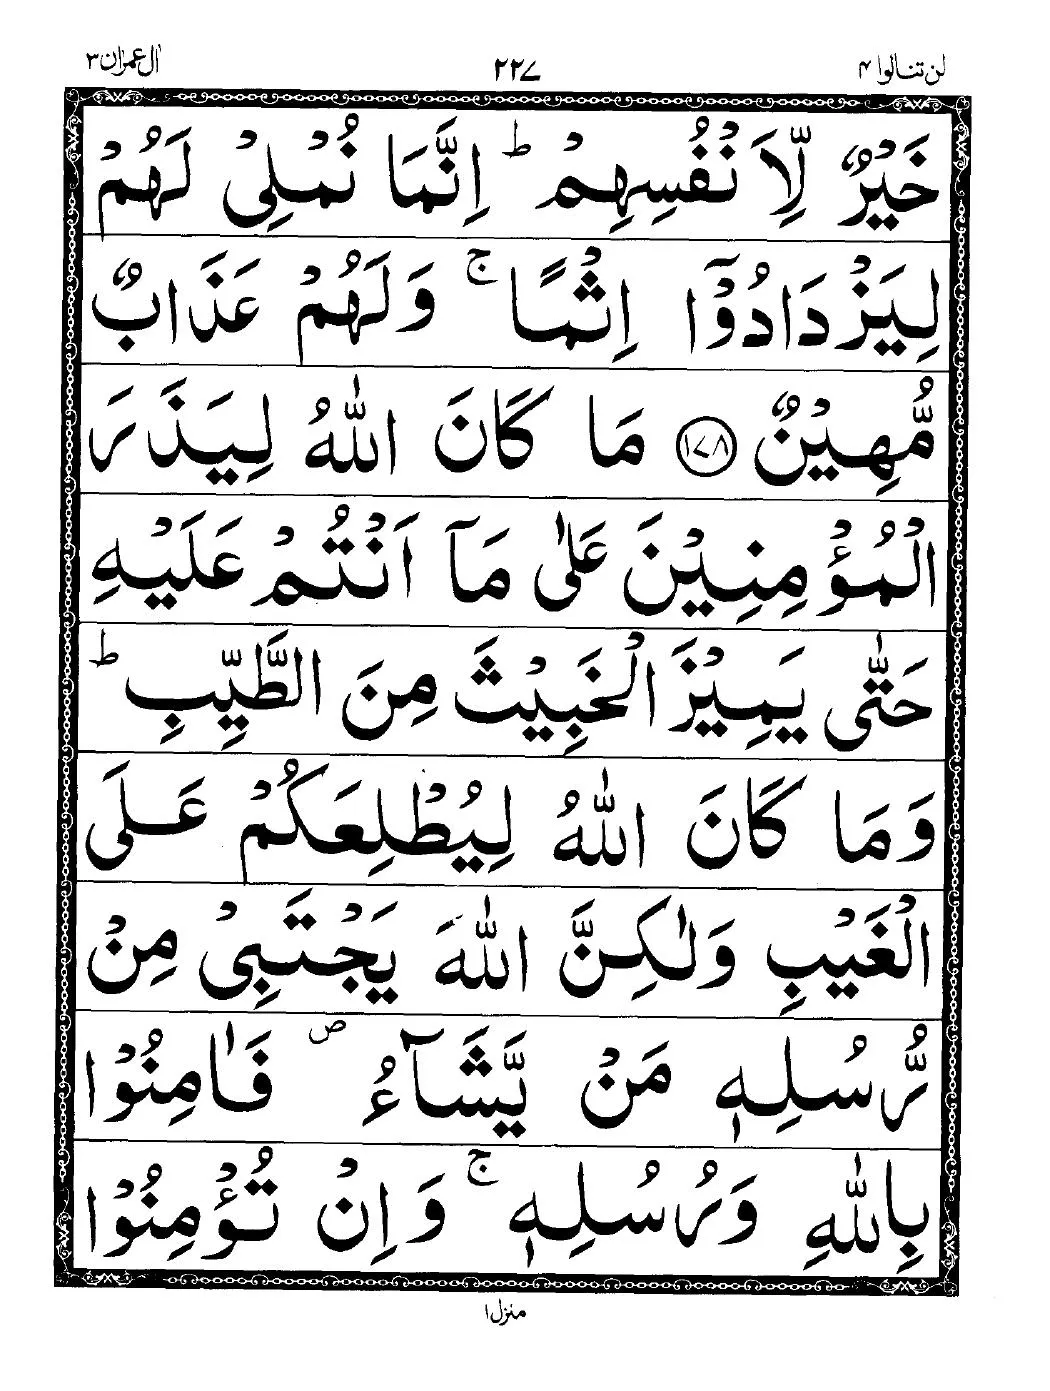 لن تنالوا ۴ ۲۲۷ اٰل عمرٰن ۳
خَيْرٌ لِّاَنْفُسِهِمْ ؕ اِنَّمَا نُمْلِيْ لَهُمْ
لِيَزْدَادُوْۤا اِثْمًا ۚ وَلَهُمْ عَذَابٌ
مُّهِيْنٌ ۝۱۷۸ مَا كَانَ اللّٰهُ لِيَذَرَ
الْمُؤْمِنِيْنَ عَلٰى مَاۤ اَنْتُمْ عَلَيْهِ
حَتّٰى يَمِيْزَ الْخَبِيْثَ مِنَ الطَّيِّبِ ؕ
وَمَا كَانَ اللّٰهُ لِيُطْلِعَكُمْ عَلَى
الْغَيْبِ وَلٰكِنَّ اللّٰهَ يَجْتَبِيْ مِنْ
رُّسُلِهٖ مَنْ يَّشَآءُ ۪ فَاٰمِنُوْا
بِاللّٰهِ وَرُسُلِهٖ ۚ وَاِنْ تُؤْمِنُوْا
منزل ۱